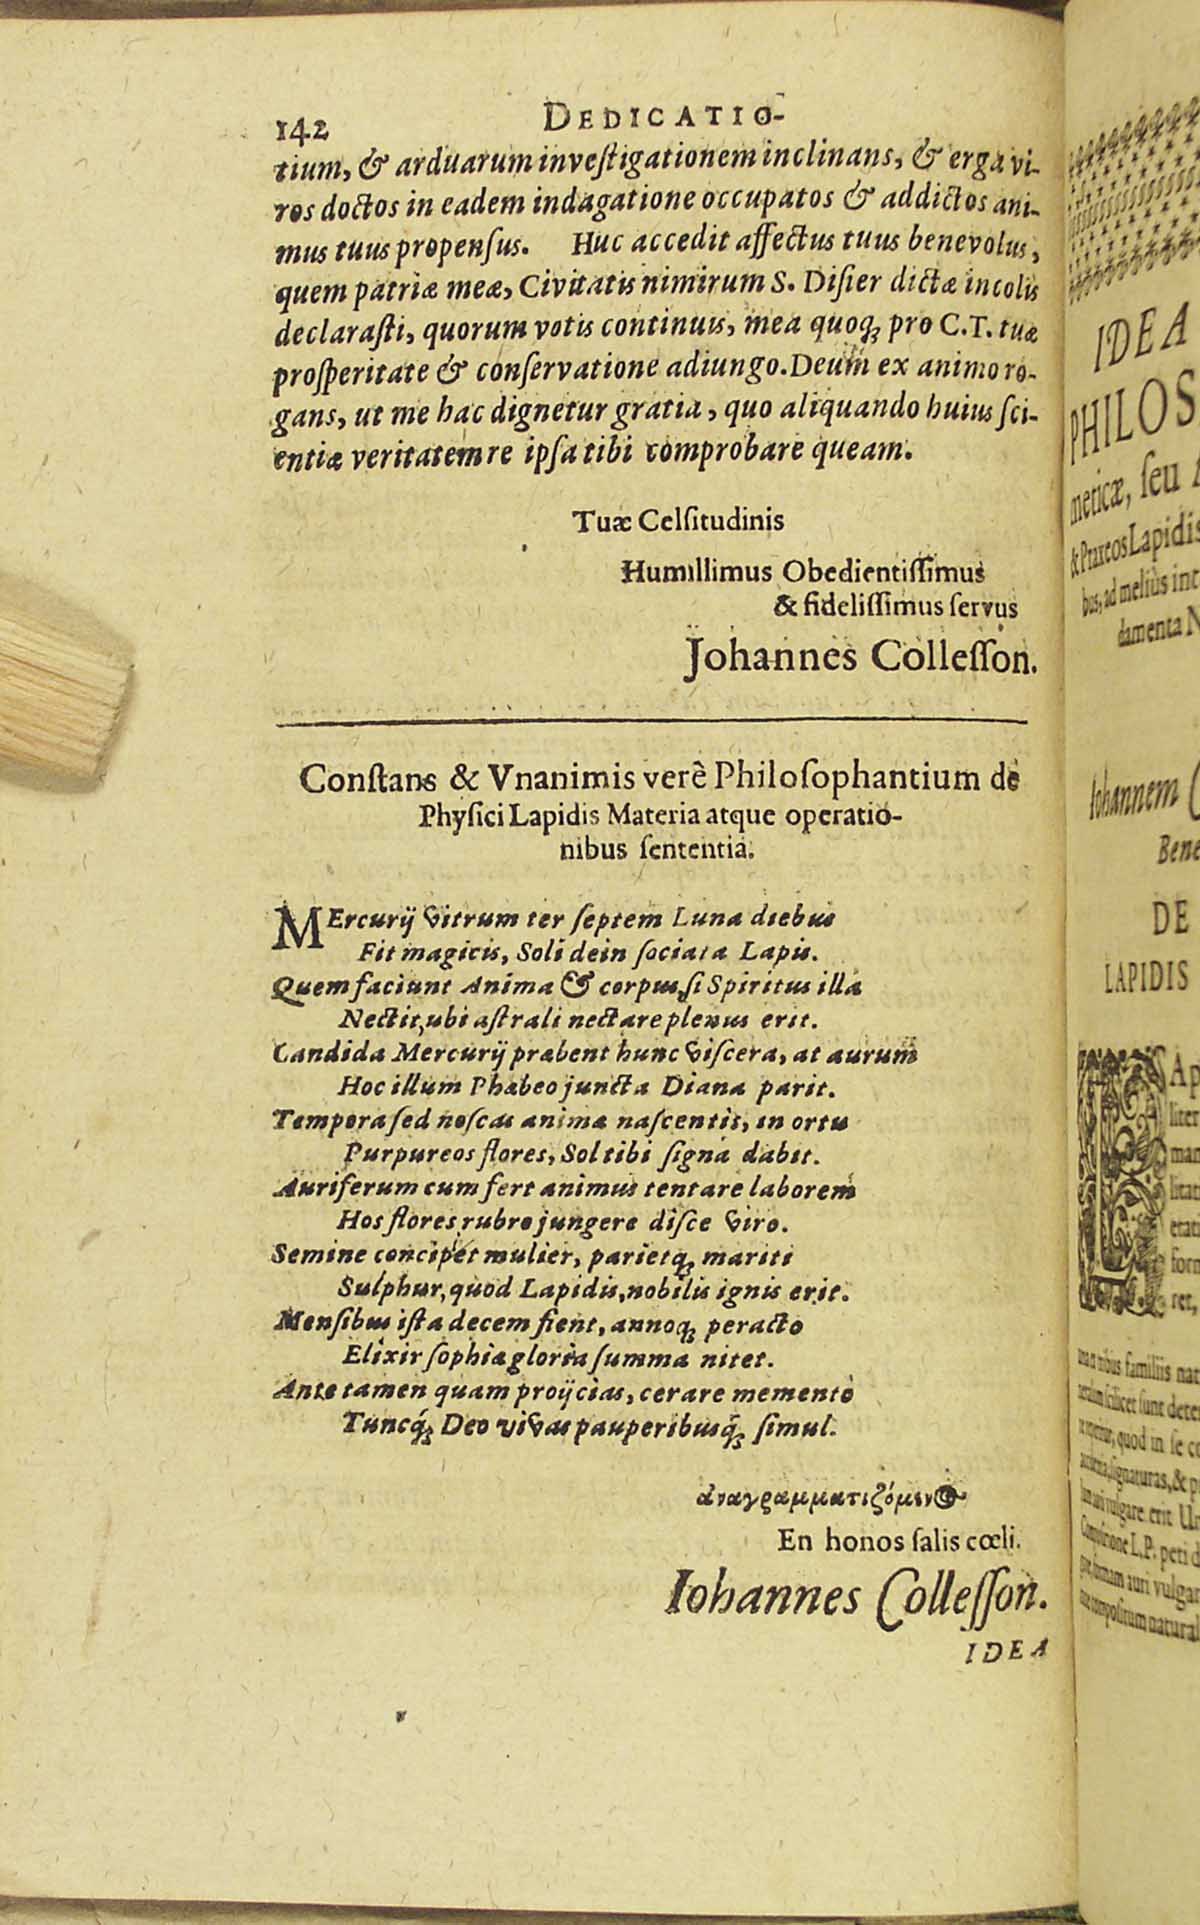 142 DEDICATIO-
tium, & arduarum investigationem inclinans, & erga vi-
ros doctos in eadem indagatione occupatos & addictos ani-
mus tuus propensus. Huc accedit affectus tuus benevolus,
quem patriæ meæ, Civitatis nimirum S. Disier dictæ incolis
declarasti, quorum votis continuis, mea quoq; pro C.T. tuæ
prosperitate & conservatione adiungo. Deum ex animo ro-
gans, ut me hac dignetur gratia, quo aliquando huius sci-
entiæ veritatem re ipsa tibi comprobare queam.
Tuæ Celsitudinis
Humillimus Obedientissimus
& fidelissimus servus
Johannes Collesson.
Constans & Vnanimis verê Philosophantium de
Physici Lapidis Materia atque operatio-
nibus sententia.
MErcurij vitrum ter septem Luna diebus
Fit magicis, Soli dein sociata Lapis.
Quem faciunt Anima & corpus, si Spiritus illa
Nectit, ubi astrali nectare plenus erit.
Candida Mercurij præbent hunc viscera, at aurum
Hoc illum Phæbeo juncta Diana parit.
Tempora sed noscas animæ nascentis, in ortu
Purpureos flores, Sol tibi signa dabit.
Auriferum cum fert animus tentare laborem
Hos flores rubro jungere disce viro.
Semine concipet mulier, parietq; mariti
Sulphur, quod Lapidis, nobilis ignis erit.
Mensibus ista decem fient, annoq; peracto
Elixir sophiæ gloria summa nitet.
Ante tamen quam proijcias, cerare memento
Tuncq́; Deo vivas pauperibusq́; simul.
ἀναγραμματιζόμενος
En honos salis cœli.
Iohannes Collesson.
IDEA
IDEA
PHILOS
meticæ, seu
& Praxeos Lapidis
bus, ad melius int
damenta N
Iohannem
Bene
DE
LAPIDIS